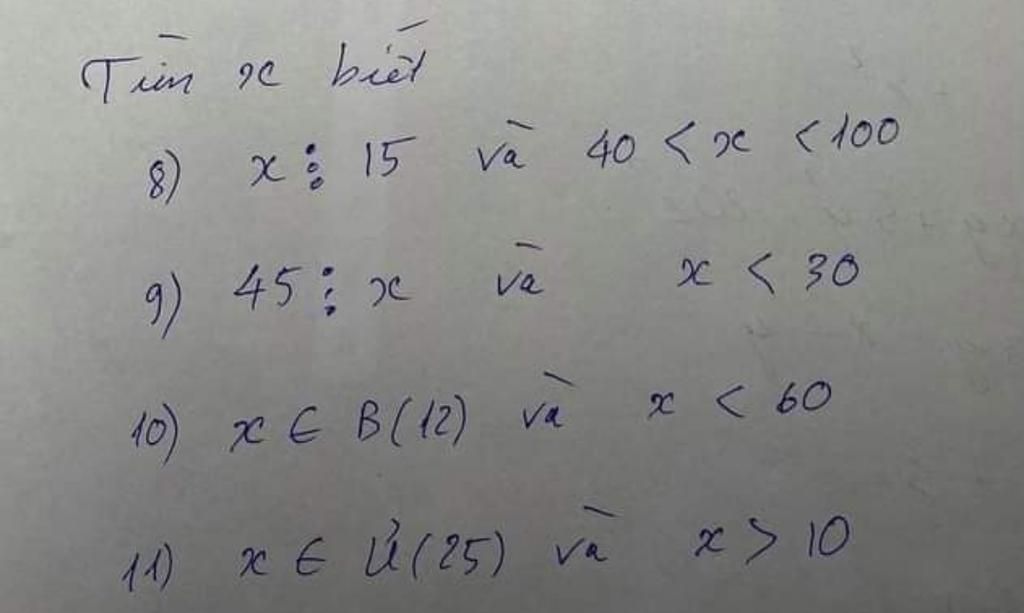 Tìm x biết
8) x ⋮ 15 và 40 < x < 100
9) 45 ⋮ x và x < 30
10) x ∈ B(12) và x < 60
11) x ∈ Ư(25) và x > 10